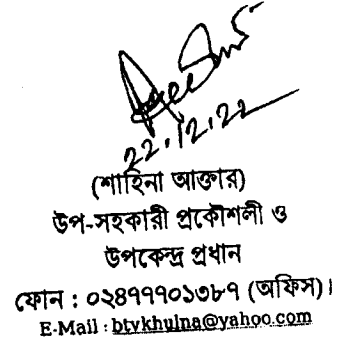 22.12.22
(শাহিনা আক্তার)
উপ-সহকারী প্রকৌশলী ও
উপকেন্দ্র প্রধান
ফোন : ০২৪৭৭৭০১৩৮৭ (অফিস)।
E-Mail : btvkhulna@yahoo.com